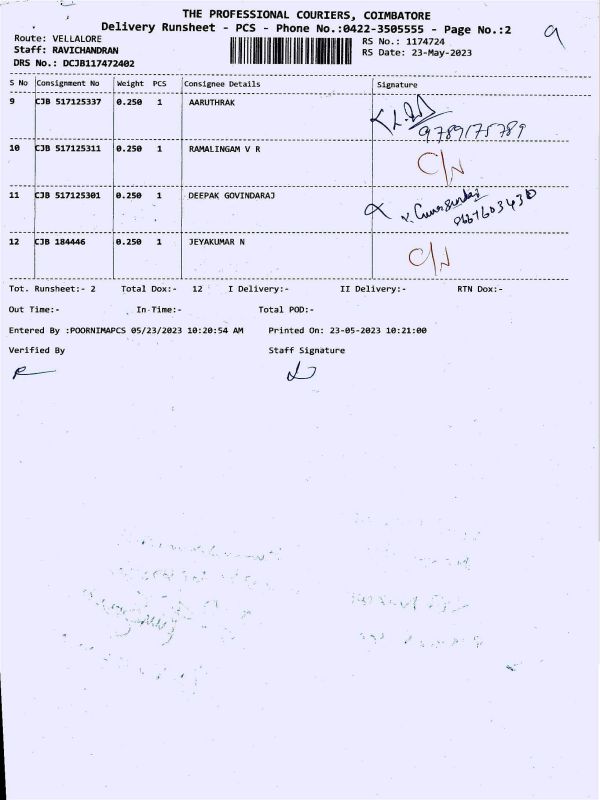 THE PROFESSIONAL COURIERS, COIMBATORE
Delivery Runsheet - PCS - Phone No.:0422-3505555 - Page No.:2
9
Route: VELLALORE
RS No.: 1174724
Staff: RAVICHANDRAN
RS Date: 23-May-2023
DRS No.: DCJB117472402
S No Consignment No Weight PCS Consignee Details Signature
9 CJB 517125337 0.250 1 AARUTHRAK
9789175789
10 CJB 517125311 0.250 1 RAMALINGAM V R C/N
11 CJB 517125301 0.250 1 DEEPAK GOVINDARAJ
12 CJB 184446 0.250 1 JEYAKUMAR N C/N
Tot. Runsheet:- 2 Total Dox:- 12 I Delivery:- II Delivery:- RTN Dox:-
Out Time:- In-Time:- Total POD:-
Entered By :POORNIMAPCS 05/23/2023 10:20:54 AM Printed On: 23-05-2023 10:21:00
Verified By Staff Signature